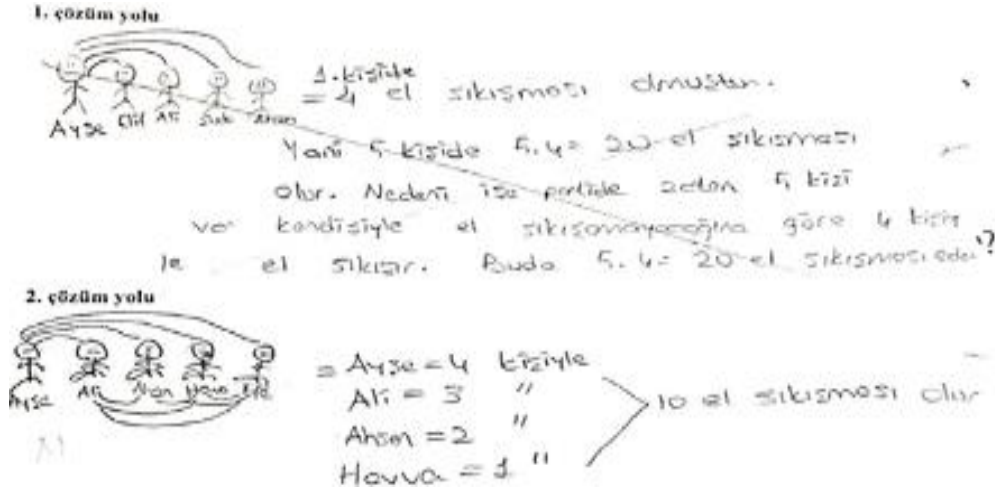 1. çözüm yolu
1. kişide
= 4 el sıkışması olmuştur.
Ayşe Elif Ali
Yani 5 kişide 5.4= 20 el sıkışması
olur. Nedeni ise partide zaten 5 kişi
var kendisiyle el sıkışamayacağına göre 4 kişiy
le el sıkışır. Buda 5.4= 20 el sıkışması eder?
2. çözüm yolu
Ayşe Ali
= Ayşe = 4 kişiyle
Ali = 3 "
Ahsen = 2 "
Havva = 1 "
10 el sıkışması olur